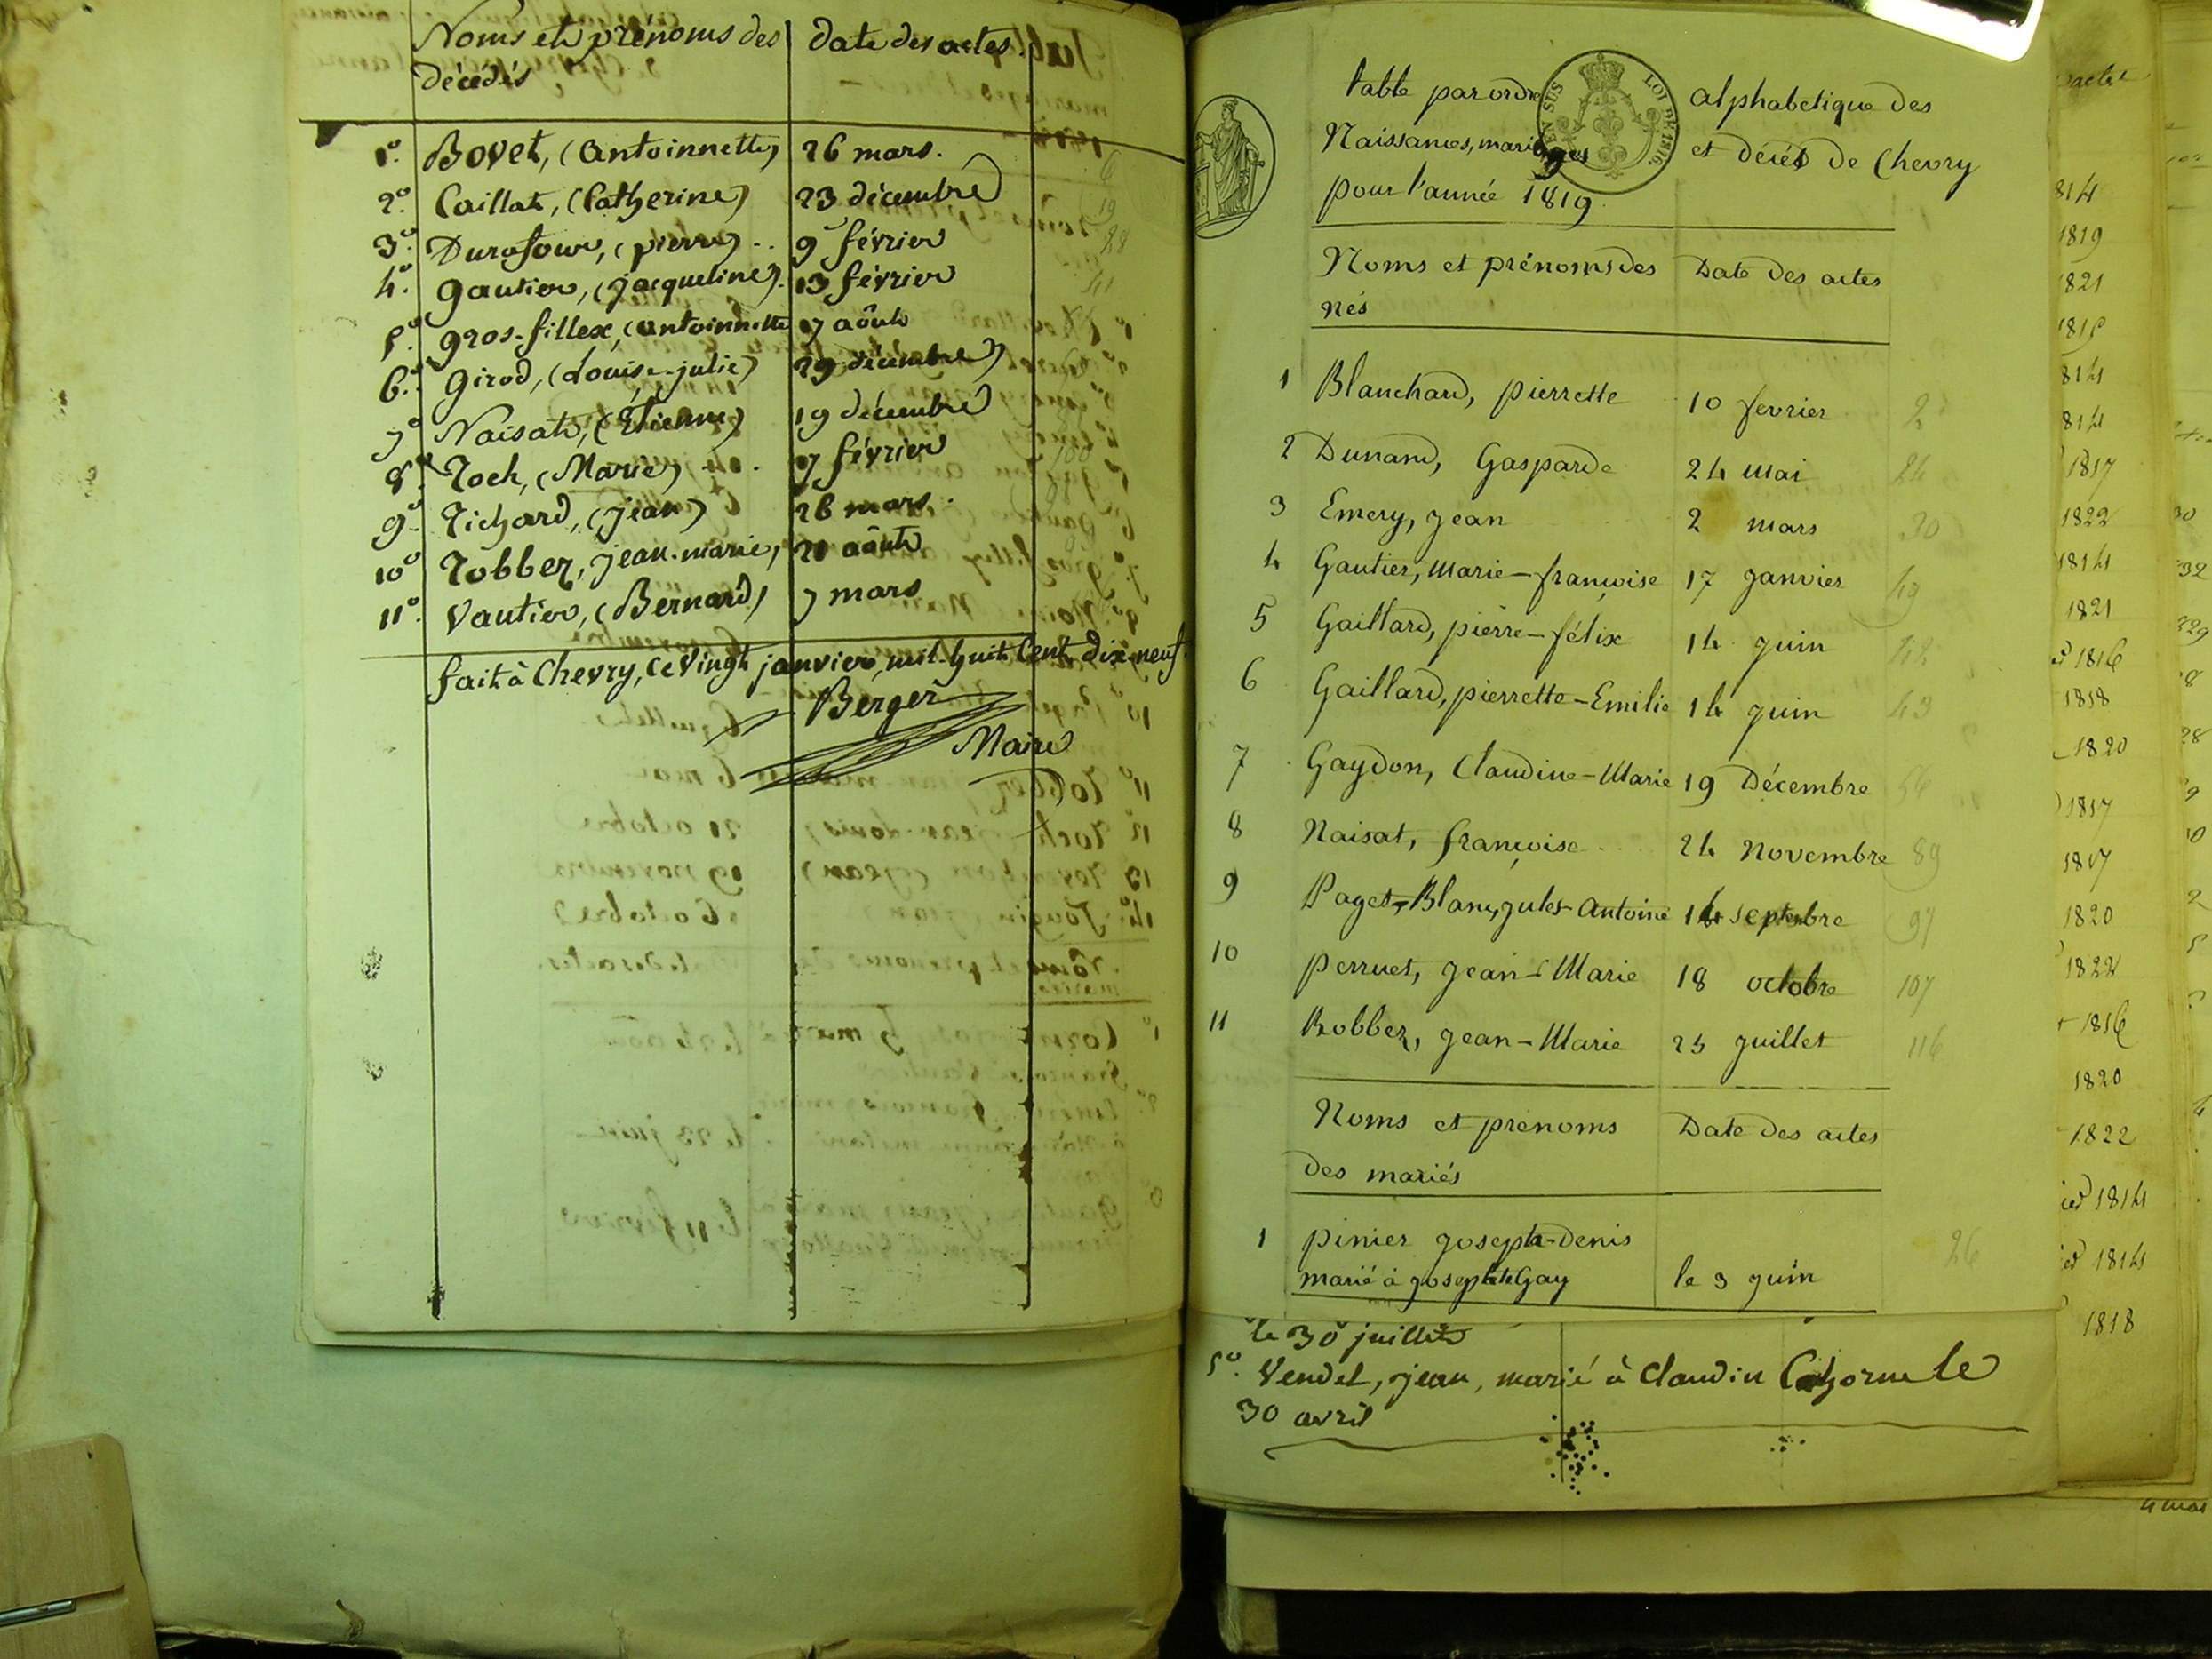 Noms et prénoms des | date des actes.
décédés
1.° Bovet, (Antoinnette) 26 mars.
2.° Caillat, (Catherine) 23 décembre
3.° Durafour, (pierre) .. 9 février
4.° gautier, (jacqueline). 13 février
5.° gros-fillex, (antoinnette 7 août
6.° Girod, (Louise-julie) 29 décembre
7.° Naisat, (Étienne) 19 décembre
8.° Roch, (Marie) 7 février
9.° Richard, (jean) 26 mars.
10.° Robbez, jean-marie, 21 août
11.° Vautier, (Bernard) 7 mars
fait à Chevry, ce Vingt janvier, mil-huit Cent Dix-neuf.
Berger
Maire
table par ordre alphabetique des
Naissances, mariages et décés de Chevry
pour l'année 1819
EN SUS LOI DE 1816.
Noms et prénoms des Date des actes
nés
1 Blanchard, pierrette 10 fevrier 2
2 Dunand, Gasparde 24 mai 24
3 Emery, jean 2 mars 30
4 Gautier, Marie-françoise 17 janvier 49
5 Gaillard, pierre-félix 14 juin 42
6 Gaillard, pierrette-Emilie 14 juin 43
7 Gaydon, Claudine-Marie 19 Décembre 54
8 Naisat, françoise 24 Novembre 89
9 Paget-Blanc, jules-Antoine 14 septembre 97
10 perruet, jean-Marie 18 octobre 107
11 Robbez, jean-Marie 25 juillet 116
Noms et prenoms Date des actes
des mariés
1 pinier joseph-Denis 26
marié à josephte Gay le 3 juin
le 30 juillet
5.° Vendel, jean, marié à Claudin le
30 avril
814
1819
1821
814
814
1817
1822
1814
1821
1816
1818
1820
1817
1817
1820
1822
1816
1820
1822
1814
1814
1818